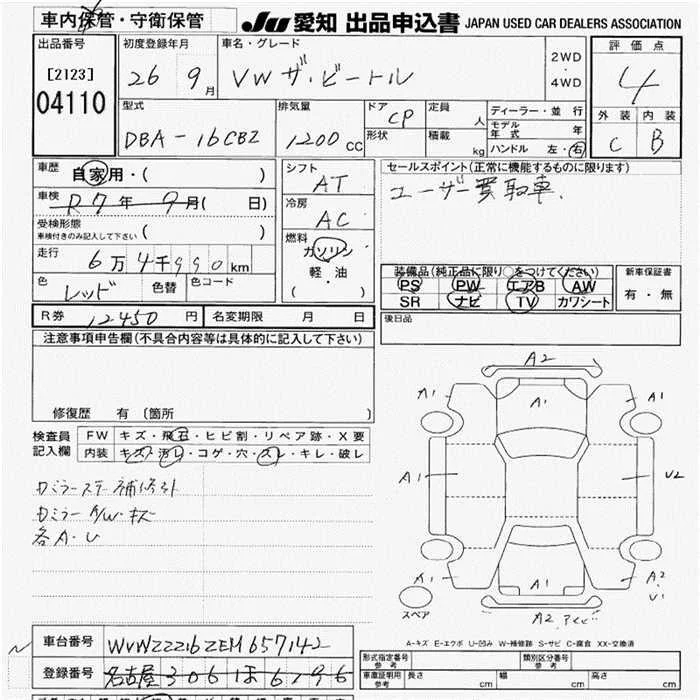 車内保管・守衛保管
JU 愛知 出品申込書 JAPAN USED CAR DEALERS ASSOCIATION
出品番号
[2123]
04110
初度登録年月
26 9月
車名・グレード
VW ザ・ビートル
2WD
・
4WD
評価点
4
外装 内装
C B
型式
DBA-16CBZ
排気量
1200 CC
ドア CP
形状
定員 人
積載 kg
ディーラー・並行
モデル年式 年
ハンドル 左・右
車歴
自家用・( )
車検
R7年 9月( 日)
受検形態
車検付きのみ記入して下さい ( )
走行
6万4千990km
色 レッド 色替 色コード
シフト
AT
冷房
AC
燃料
ガソリン
軽・油
( )
セールスポイント(正常に機能するものに限ります)
ユーザー買取車.
装備品(純正品に限り○をつけてください)
PS PW エアB AW
SR ナビ TV カワシート
新車保証書
有・無
R券 12450円 名変期限 月 日
後日品
注意事項申告欄(不具合内容等は具体的に記入して下さい)
修復歴 有 〔箇所 〕
検査員
記入欄
FW キズ・飛石・ヒビ割・リペア跡・X要
内装 キズ・汚レ・コゲ・穴・スレ・キレ・破レ
各A・U
A2
A1 A1 A1
A1 U2
A1 A1 A2
U1
A2
スペア
A-キズ E-エクボ U-凹み W-補修跡 S-サビ C-腐食 XX-交換済
車台番号 WVWZZZ16ZEM657142
登録番号 名古屋 306 ほ 6196
形式指定番号
参考
類別区分番号
参考
車庫証明用
参考
長さ cm 幅 cm 高さ cm